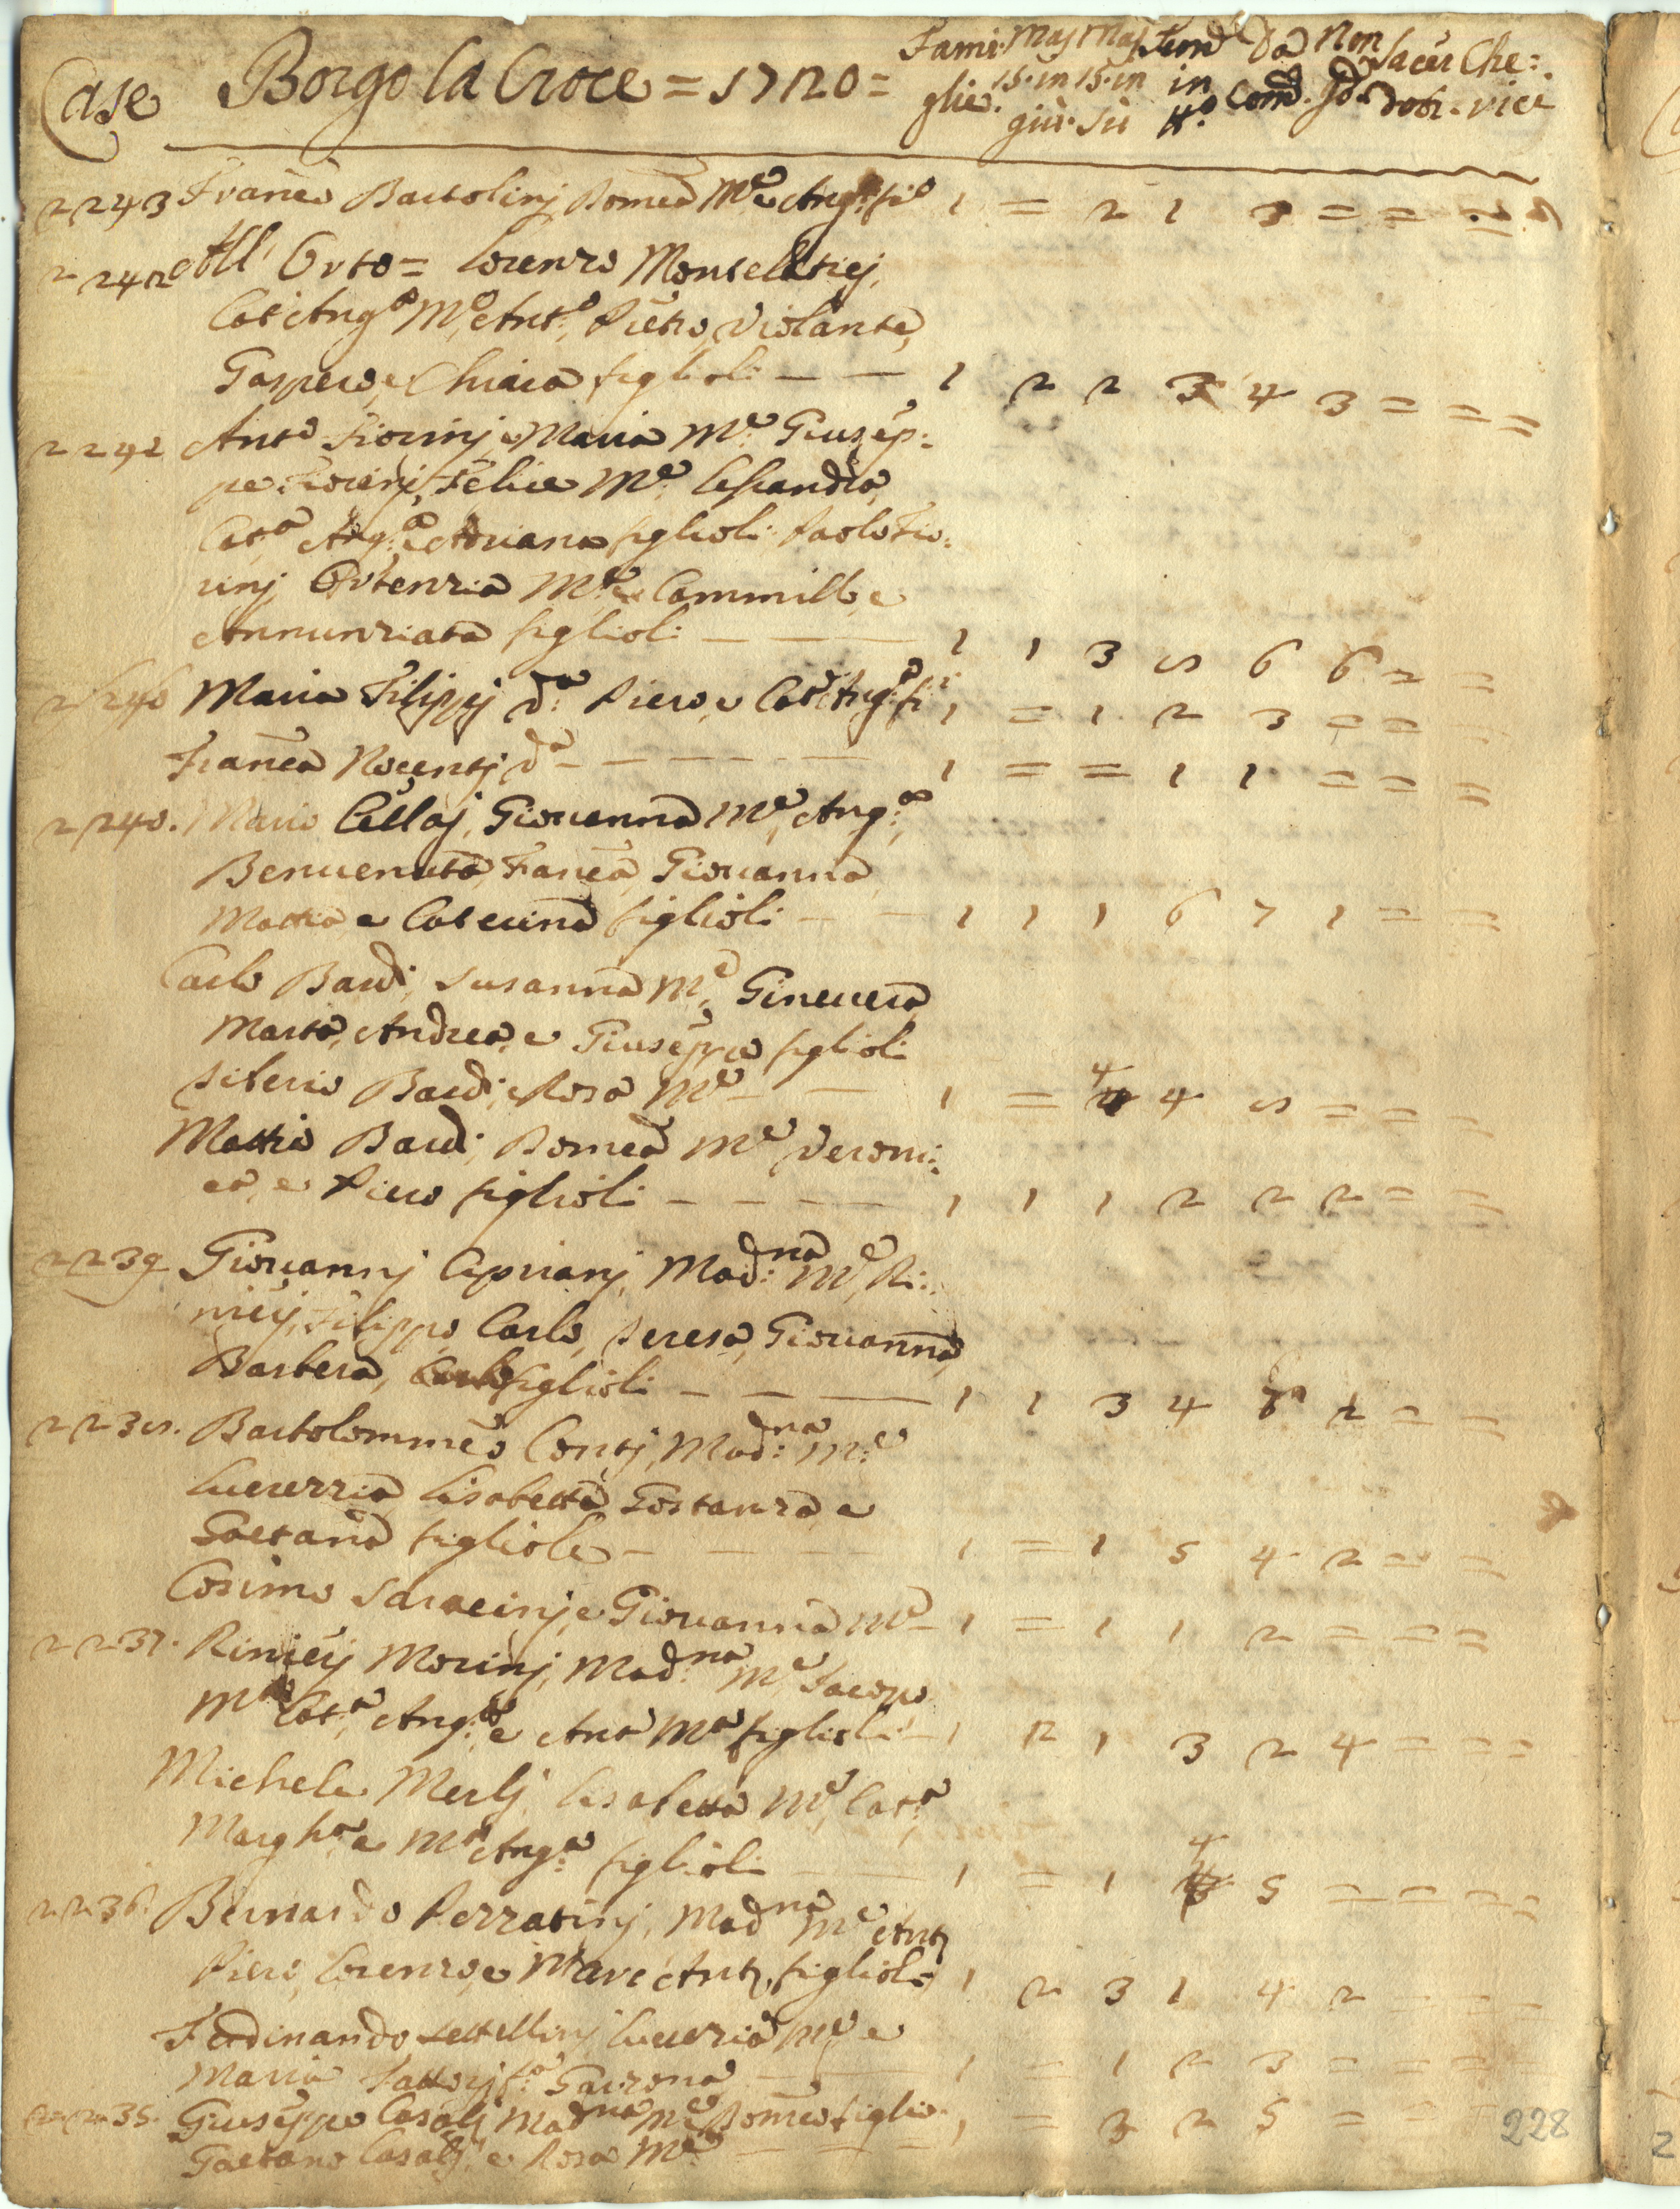 Case Borgo la Croce = 1720 = Fami: glie. Mas 15. in giù. Mas 15. in sù Fem.e in n.o Da Com.e Non Sacer doti. Che: rici
2243 Franc.o Bartolinj Domca M.e e Ang.o fi.o 1 = 2 1 3 = = =
2242 All' Orto = Lorenzo Monselesiej,
Cat. Ang.a M.a Ant.o Pietro, Violante,
Gaspero, e Chiara figlioli — — 1 2 2 3 4 3 = = =
2242 Ant.o Fiorinj e Maria M.e Giusep:
pe Fiorinj, Felice M.e Lisandra
Cat.a Ang.a e Adriana figlioli Paolo Fio:
rinj Ortenzia M.e e Cammillo e
Annunziata figlioli — — 1 1 3 5 6 6 2 =
2240 Maria Filippj d.a Piero, e Cat. Ang.a fi.i 1 = 1 2 3 = = =
Franca Nocentj d.a — — — — 1 = = 1 1 = = =
2240. Mario Cellaj, Giovanna M.e, Ang.a
Benvenuta, Franca, Giovanna
Mattia e Caterina figlioli — — 1 1 1 6 7 1 = =
Carlo Bardi, Susanna M.e, Ginevera
Marta, Andrea, e Giuseppe figlioli
Silerio Bardi, e Rosa M.e — — 1 = 4 4 5 = = =
Mattio Bardi, Domca M.e Veroni:
ca, e Piero figlioli — — — 1 1 1 2 2 2 = =
2239 Giovannj Ciprianj, Mad:na M.e Ri:
nieij, Filippo, Carlo, Teresa, Giovanna,
Barbera, figlioli — — — 1 1 3 4 = =
2238. Bartolommeo Contj, Mad:na M.e
Lucrezzia Lisabetta Gostanza e
Gaetana figliole — — — 1 = 1 5 4 2 = =
Cosimo Saracinj e Giovanna M.e — 1 = 1 1 2 = = =
2237. Rinieij Morinj, Mad.na M.e Jacopo
M.a Cat.a, Ang.a e Ant.a M.a figlioli — 1 2 1 3 2 4 = = =
Michele Merlj, Lisabetta M.e, Cat.a
Margh.a e M.a Ang.a figlioli — — 1 = 1 4 5 = = = =
2236. Bernardo Pezzatinj, Mad.na M.e Ant.o
Piero, Lorenzo, e Marc Ant.o figlioli 1 2 3 1 4 2 = = =
Ferdinando Lucrezia M.e e
Maria Fattorj Garzona — — 1 = 1 2 3 = = =
2235. Giuseppe Casalj Mad.na M.e Domco figlio. 1 = 3 2 5 = =
Gaetano Casalj e Rosa M.e — —
228